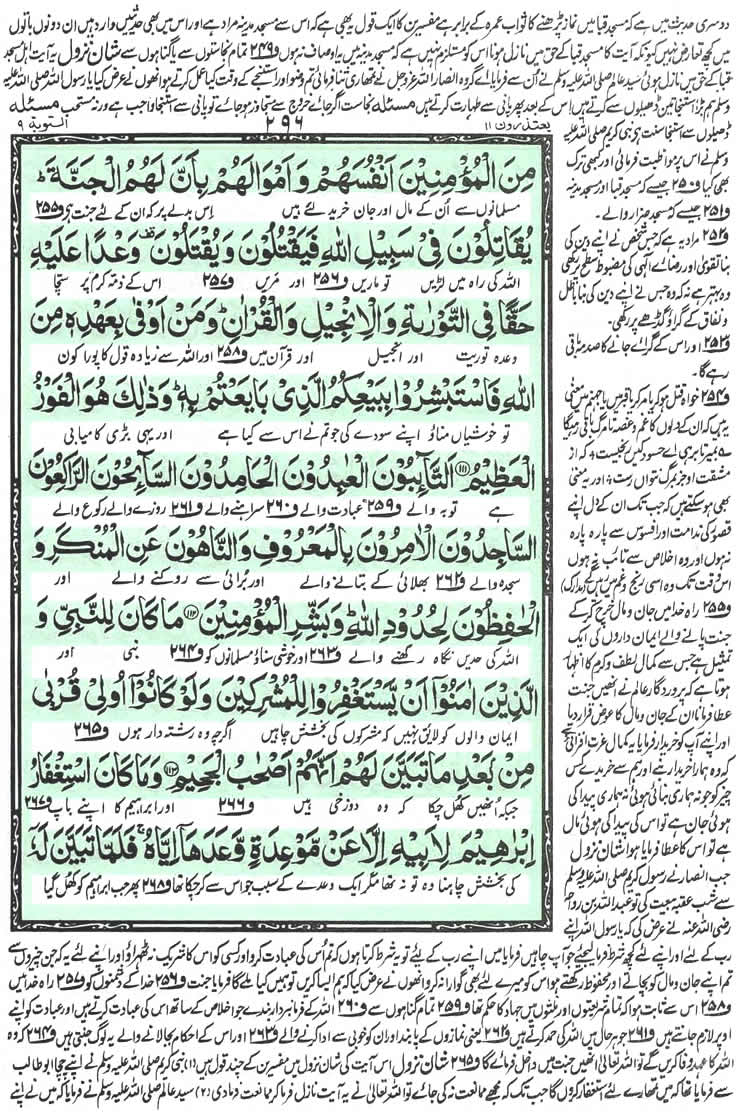 دوسری حدیث میں ہے کہ مسجد قبا میں نماز پڑھنے کا ثواب عمرہ کے برابر ہے مفسرین کا ایک قول یہ بھی ہے کہ اس سے مسجد مدینہ مراد ہے اور اس میں بھی حدیثیں وارد ہیں ان دونوں باتوں
میں کچھ تعارض نہیں کیونکہ آیت کا مسجد قبا کے حق میں نازل ہونا اس کو مستلزم نہیں ہے کہ مسجد مدینہ میں یہ اوصاف نہ ہوں و۲۴۹ تمام نجاستوں سے یا گناہوں سے شان نزول یہ آیت اہل مسجد
قبا کے حق میں نازل ہوئی سید عالم صلی اللہ علیہ وسلم نے ان سے فرمایا اے گروہ انصار اللہ عزوجل نے تمہاری ثنا فرمائی تم وضو اور استنجے کے وقت کیا عمل کرتے ہو انہوں نے عرض کیا یا رسول اللہ صلی اللہ علیہ
وسلم ہم بڑا استنجا تین ڈھیلوں سے کرتے ہیں اس کے بعد پھر پانی سے طہارت کرتے ہیں مسئلہ نجاست اگر جائے خرج سے متجاوز ہو جائے تو پانی سے استنجا واجب ہے ورنہ مستحب مسئلہ
التوبة ۹
۲۹۶
یعتذرون ۱۱
مِنَ الْمُؤْمِنِیْنَ اَنْفُسَهُمْ وَ اَمْوَالَهُمْ بِاَنَّ لَهُمُ الْجَنَّةَ ؕ
مسلمانوں سے اُن کے مال اور جان خرید لئے ہیں اِس بدلے پر کہ ان کے لئے جنت ہے و۲۵۵
یُقَاتِلُوْنَ فِیْ سَبِیْلِ اللّٰهِ فَیَقْتُلُوْنَ وَ یُقْتَلُوْنَ وَعْدًا عَلَیْهِ
اللہ کی راہ میں لڑیں تو ماریں و۲۵۶ اور مریں و۲۵۷ اس کے ذمہ کرم پر سچا
حَقًّا فِی التَّوْرٰىةِ وَ الْاِنْجِیْلِ وَ الْقُرْاٰنِ ؕ وَ مَنْ اَوْفٰى بِعَهْدِهٖ مِنَ
وعدہ توریت اور انجیل اور قرآن میں و۲۵۸ اور اللہ سے زیادہ قول کا پورا کون
اللّٰهِ فَاسْتَبْشِرُوْا بِبَیْعِكُمُ الَّذِیْ بَایَعْتُمْ بِهٖ ؕ وَ ذٰلِكَ هُوَ الْفَوْزُ
تو خوشیاں مناؤ اپنے سودے کی جو تم نے اس سے کیا ہے اور یہی بڑی کامیابی
الْعَظِیْمُ ﴿۱۱۱﴾ اَلتَّآىِٕبُوْنَ الْعٰبِدُوْنَ الْحَامِدُوْنَ السَّآىِٕحُوْنَ الرّٰكِعُوْنَ
ہے توبہ والے و۲۵۹ عبادت والے و۲۶۰ سراہنے والے و۲۶۱ روزے والے رکوع والے
السَّاجِدُوْنَ الْاٰمِرُوْنَ بِالْمَعْرُوْفِ وَ النَّاهُوْنَ عَنِ الْمُنْكَرِ وَ
سجدہ والے و۲۶۲ بھلائی کے بتانے والے اور بُرائی سے روکنے والے اور
الْحٰفِظُوْنَ لِحُدُوْدِ اللّٰهِ ؕ وَ بَشِّرِ الْمُؤْمِنِیْنَ ﴿۱۱۲﴾ مَا كَانَ لِلنَّبِیِّ وَ
اللہ کی حدیں نگاہ رکھنے والے و۲۶۳ اور خوشی سناؤ مسلمانوں کو و۲۶۴ نبی اور
الَّذِیْنَ اٰمَنُوْۤا اَنْ یَّسْتَغْفِرُوْا لِلْمُشْرِكِیْنَ وَ لَوْ كَانُوْۤا اُولِیْ قُرْبٰى
ایمان والوں کو لائق نہیں کہ مشرکوں کی بخشش چاہیں اگرچہ وہ رشتہ دار ہوں و۲۶۵
مِنْۢ بَعْدِ مَا تَبَیَّنَ لَهُمْ اَنَّهُمْ اَصْحٰبُ الْجَحِیْمِ ﴿۱۱۳﴾ وَ مَا كَانَ اسْتِغْفَارُ
جبکہ اُنھیں کھل چکا کہ وہ دوزخی ہیں و۲۶۶ اور ابراہیم کا اپنے باپ و۲۶۷
اِبْرٰهِیْمَ لِاَبِیْهِ اِلَّا عَنْ مَّوْعِدَةٍ وَّعَدَهَاۤ اِیَّاهُ ۚ فَلَمَّا تَبَیَّنَ لَهٗۤ
کی بخشش چاہنا وہ تو نہ تھا مگر ایک وعدے کے سبب جو اس سے کر چکا تھا و۲۶۸ پھر جب ابراہیم کو کھل گیا
ڈھیلوں سے استنجا سنت ہے نبی کریم صلی اللہ علیہ
وسلم نے اس پر مواظبت فرمائی اور کبھی ترک
بھی کیا و۲۵۰ جیسے کہ مسجد قبا اور مسجد مدینہ
و۲۵۱ جیسے کہ مسجد ضرار والے۔
و۲۵۲ مراد یہ ہے کہ جس شخص نے اپنے دین کی
بنا تقویٰ اور رضائے الٰہی کی مضبوط سطح پر رکھی
وہ بہتر ہے نہ کہ وہ جس نے اپنے دین کی بنا باطل
و نفاق کے گراؤ گڑھے پر رکھی۔
و۲۵۳ اور اس کے گرائے جانے کا صدمہ باقی
رہے گا۔
و۲۵۴ خواہ قتل ہو کر یا مر کر یا قبر میں یا جہنم میں معنی
یہ ہیں کہ ان کے دلوں کا غم و غصہ تا مرگ باقی رہیگا
بمیر تا برہی اے حسود کیں رنجیست کہ از
مشقت او جز بمرگ نتواں رست اور یہ معنی
بھی ہو سکتے ہیں کہ جب تک ان کے دل اپنے
قصور کی ندامت اور افسوس سے پارہ پارہ
نہ ہوں اور وہ اخلاص سے تائب نہ ہوں
اس وقت تک وہ اسی رنج و غم میں رہیں گے (مدارک)
و۲۵۵ راہ خدا میں جان و مال خرچ کر کے
جنت پانے والے ایمان داروں کی ایک
تمثیل ہے جس سے کمال لطف و کرم کا اظہار
ہوتا ہے کہ پروردگار عالم نے انھیں جنت
عطا فرمانا ان کے جان و مال کا عوض قرار دیا
اور اپنے آپ کو خریدار فرمایا یہ کمال عزت افزائی ہے
کہ وہ ہمارا خریدار بنے اور ہم سے خریدے کس
چیز کو جو نہ ہماری بنائی ہوئی نہ ہماری پیدا کی
ہوئی جان ہے تو اس کی پیدا کی ہوئی مال
ہے تو اس کا عطا فرمایا ہوا شان نزول
جب انصار نے رسول کریم صلی اللہ علیہ وسلم
سے شب عقبہ بیعت کی تو عبد اللہ بن رواحہ
رضی اللہ عنہ نے عرض کی کہ یا رسول اللہ اپنے
رب کے لئے اور اپنے لئے کچھ شرط فرما لیجئے جو آپ چاہیں فرمایا میں اپنے رب کے لئے تو یہ شرط کرتا ہوں کہ تم اس کی عبادت کرو اور کسی کو اس کا شریک نہ ٹھہراؤ اور اپنے لئے یہ کہ جن چیزوں سے
تم اپنے جان و مال کو بچاتے اور محفوظ رکھتے ہو اس کو میرے لئے بھی گوارا نہ کرو انھوں نے عرض کیا کہ ہم ایسا کریں تو ہمیں کیا ملے گا فرمایا جنت و۲۵۶ خدا کے دشمنوں کو و۲۵۷ راہ خدا میں
و۲۵۸ اس سے ثابت ہوا کہ تمام شریعتوں اور ملتوں میں جہاد کا حکم تھا و۲۵۹ تمام گناہوں سے و۲۶۰ اللہ کے فرمانبردار بندے جو اخلاص کے ساتھ اس کی عبادت کرتے ہیں اور عبادت کو اپنے
اوپر لازم جانتے ہیں و۲۶۱ جو ہر حال میں اللہ کی حمد کرتے ہیں و۲۶۲ یعنی نمازوں کے پابند اور ان کو خوبی سے ادا کرنے والے و۲۶۳ اور اس کے احکام بجا لانے والے یہ لوگ جنتی ہیں و۲۶۴ کہ وہ
اللہ کا عہد وفا کریں گے تو اللہ تعالیٰ انھیں جنت میں داخل فرمائے گا و۲۶۵ شان نزول اس آیت کی شان نزول میں مفسرین کے چند قول ہیں (۱) نبی کریم صلی اللہ علیہ وسلم نے اپنے چچا ابو طالب
سے فرمایا تھا کہ میں تمہارے لئے استغفار کروں گا جب تک کہ مجھے ممانعت نہ کی جائے تو اللہ تعالیٰ نے یہ آیت نازل فرما کر ممانعت فرما دی (۲) سید عالم صلی اللہ علیہ وسلم نے فرمایا کہ میں نے اپنے